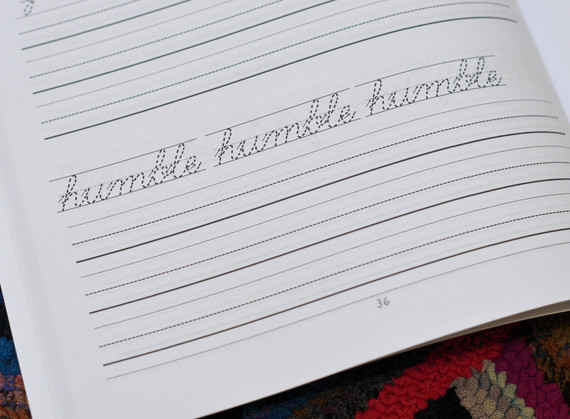 humble humble humble
36